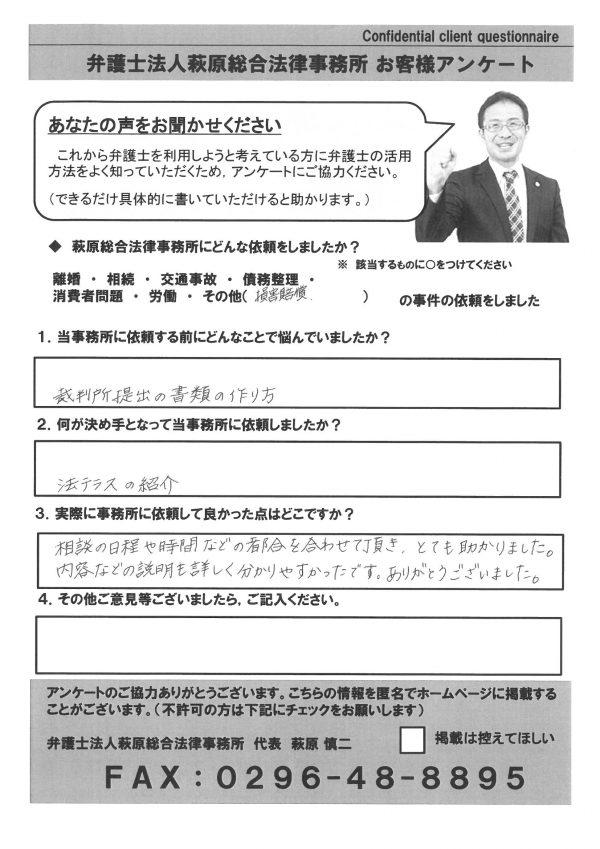 Confidential client questionnaire
弁護士法人萩原総合法律事務所 お客様アンケート
あなたの声をお聞かせください
これから弁護士を利用しようと考えている方に弁護士の活用
方法をよく知っていただくため，アンケートにご協力ください。
（できるだけ具体的に書いていただけると助かります。）
◆ 萩原総合法律事務所にどんな依頼をしましたか？
※ 該当するものに○をつけてください
離婚 ・ 相続 ・ 交通事故 ・ 債務整理 ・
消費者問題 ・ 労働 ・ その他( 損害賠償 ) の事件の依頼をしました
1．当事務所に依頼する前にどんなことで悩んでいましたか？
裁判所提出の書類の作り方
2．何が決め手となって当事務所に依頼しましたか？
法テラスの紹介
3．実際に事務所に依頼して良かった点はどこですか？
相談の日程や時間などの都合を合わせて頂き，とても助かりました。
内容などの説明も詳しく分かりやすかったです。ありがとうございました。
4．その他ご意見等ございましたら，ご記入ください。
アンケートのご協力ありがとうございます。こちらの情報を匿名でホームページに掲載する
ことがございます。（不許可の方は下記にチェックをお願いします）
弁護士法人萩原総合法律事務所 代表 萩原 慎二 掲載は控えてほしい
FAX：0296-48-8895